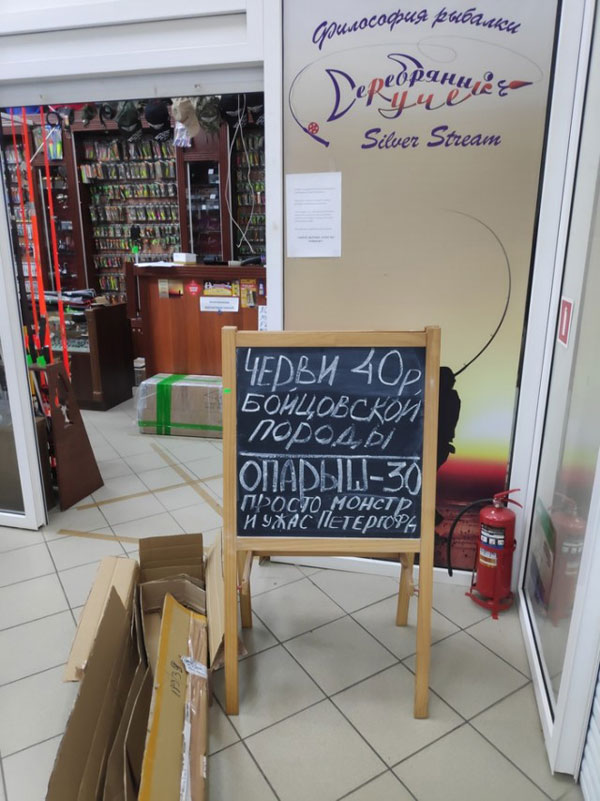 Философия рыбалки
Серебряный
Ручей
Silver Stream
ЧЕРВИ 40р,
БОЙЦОВСКОЙ
ПОРОДЫ
ОПАРЫШ-30
ПРОСТО МОНСТР
И УЖАС ПЕТЕРГОФА